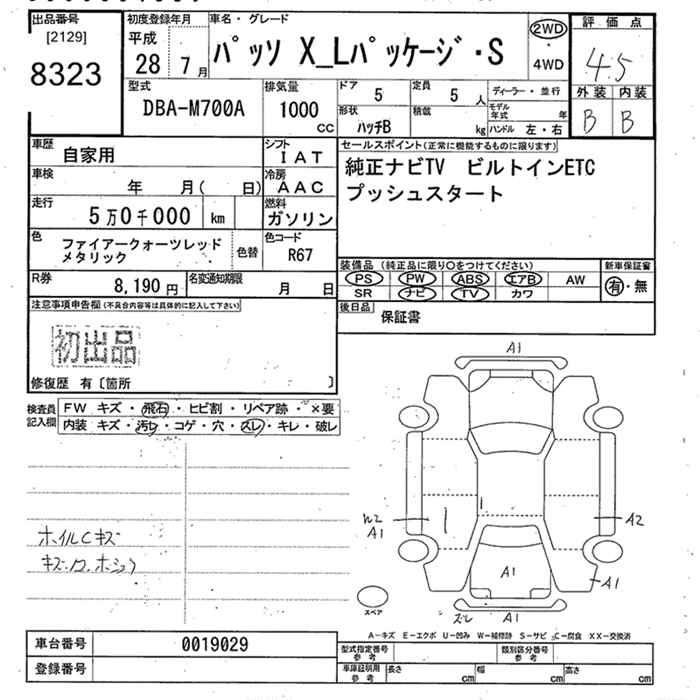 出品番号
[2129]
8323
初度登録年月
平成
28 7月
車名・グレード
パッソ X_Lパッケージ・S
2WD
・
4WD
評価点
4.5
外装 内装
B B
型式
DBA-M700A
排気量
1000
CC
ドア
5
定員
5 人
形状
ハッチB
積載
kg
ディーラー・並行
モデル年式 年
ハンドル 左・右
車歴
自家用
シフト
IAT
車検
年 月( 日)
冷房
AAC
走行
5万0千000 km
燃料
ガソリン
色
ファイアークォーツレッド
メタリック
色替
色コード
R67
R券
8,190 円
名変通知期限
月 日
セールスポイント(正常に機能するものに限ります)
純正ナビTV ビルトインETC
プッシュスタート
装備品 (純正品に限り○をつけてください)
PS PW ABS エアB AW
SR ナビ TV カワ
新車保証書
有・無
後日品
保証書
注意事項申告欄(不具合内容等は具体的に記入して下さい)
初出品
修復歴 有〔箇所 〕
検査員
記入欄
FW キズ・飛石・ヒビ割・リペア跡・×要
内装 キズ・汚レ・コゲ・穴・スレ・キレ・破レ
ホイルCキズ
A1
A1
A2
A1
A1
スレ A1
スペア
A-キズ E-エクボ U-凹み W-補修跡 S-サビ C-腐食 XX-交換済
車台番号
0019029
登録番号
型式指定番号
参考
類別区分番号
参考
車庫証明用
参考
長さ cm
幅 cm
高さ cm